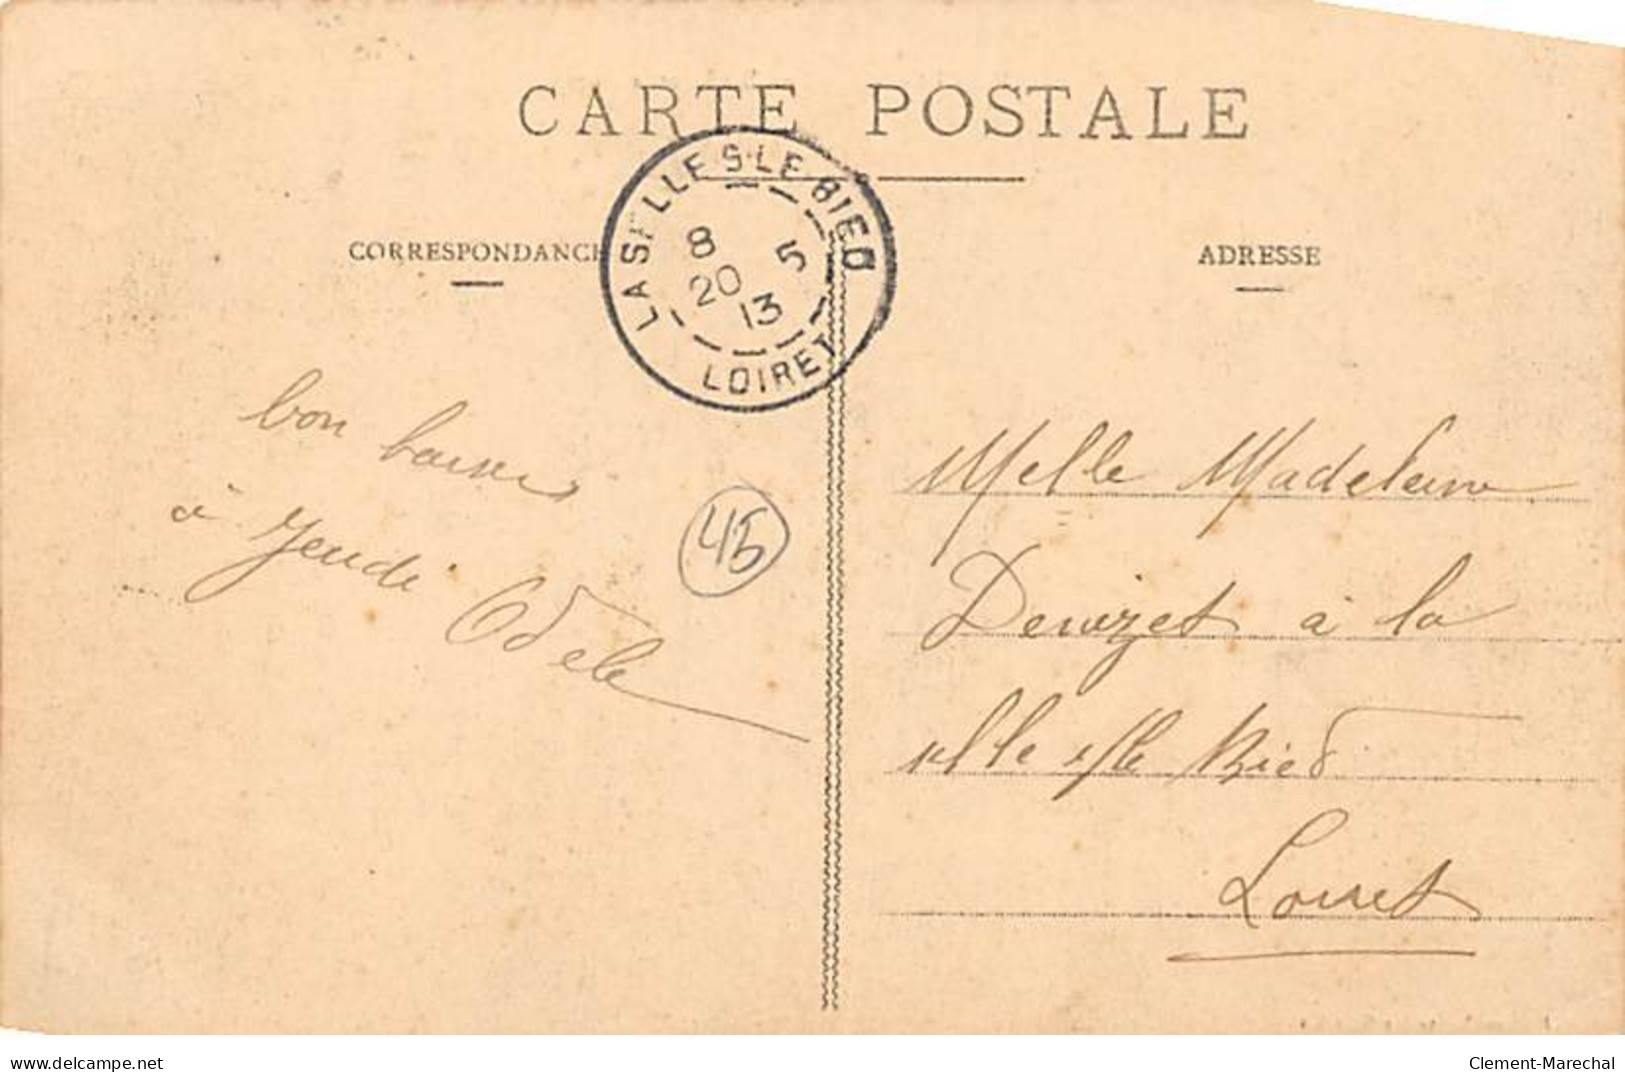 CARTE POSTALE
CORRESPONDANCE
ADRESSE
LA SELLE S-LE BIED
8 5
20
13
LOIRET
bon baisers
à Jeudi
Odele
45
Melle Madeleine
Denizet à la
selle s/le Bied
Loiret
delcampe.net
Clement-Marechal